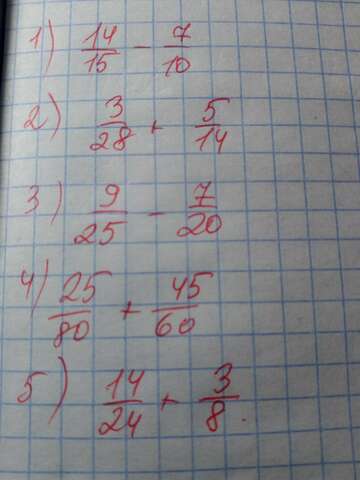 1) 14/15 - 7/10
2) 3/28 + 5/14
3) 9/25 - 7/20
4) 25/80 + 45/60
5) 14/24 + 3/8